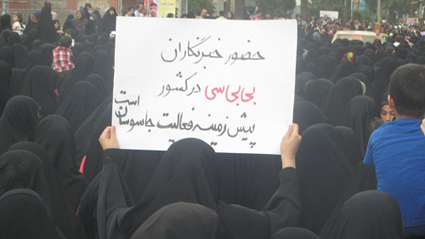 حضور خبرنگاران
بی‌بی‌سی در کشور
پیش زمینه فعالیت جاسوسان است